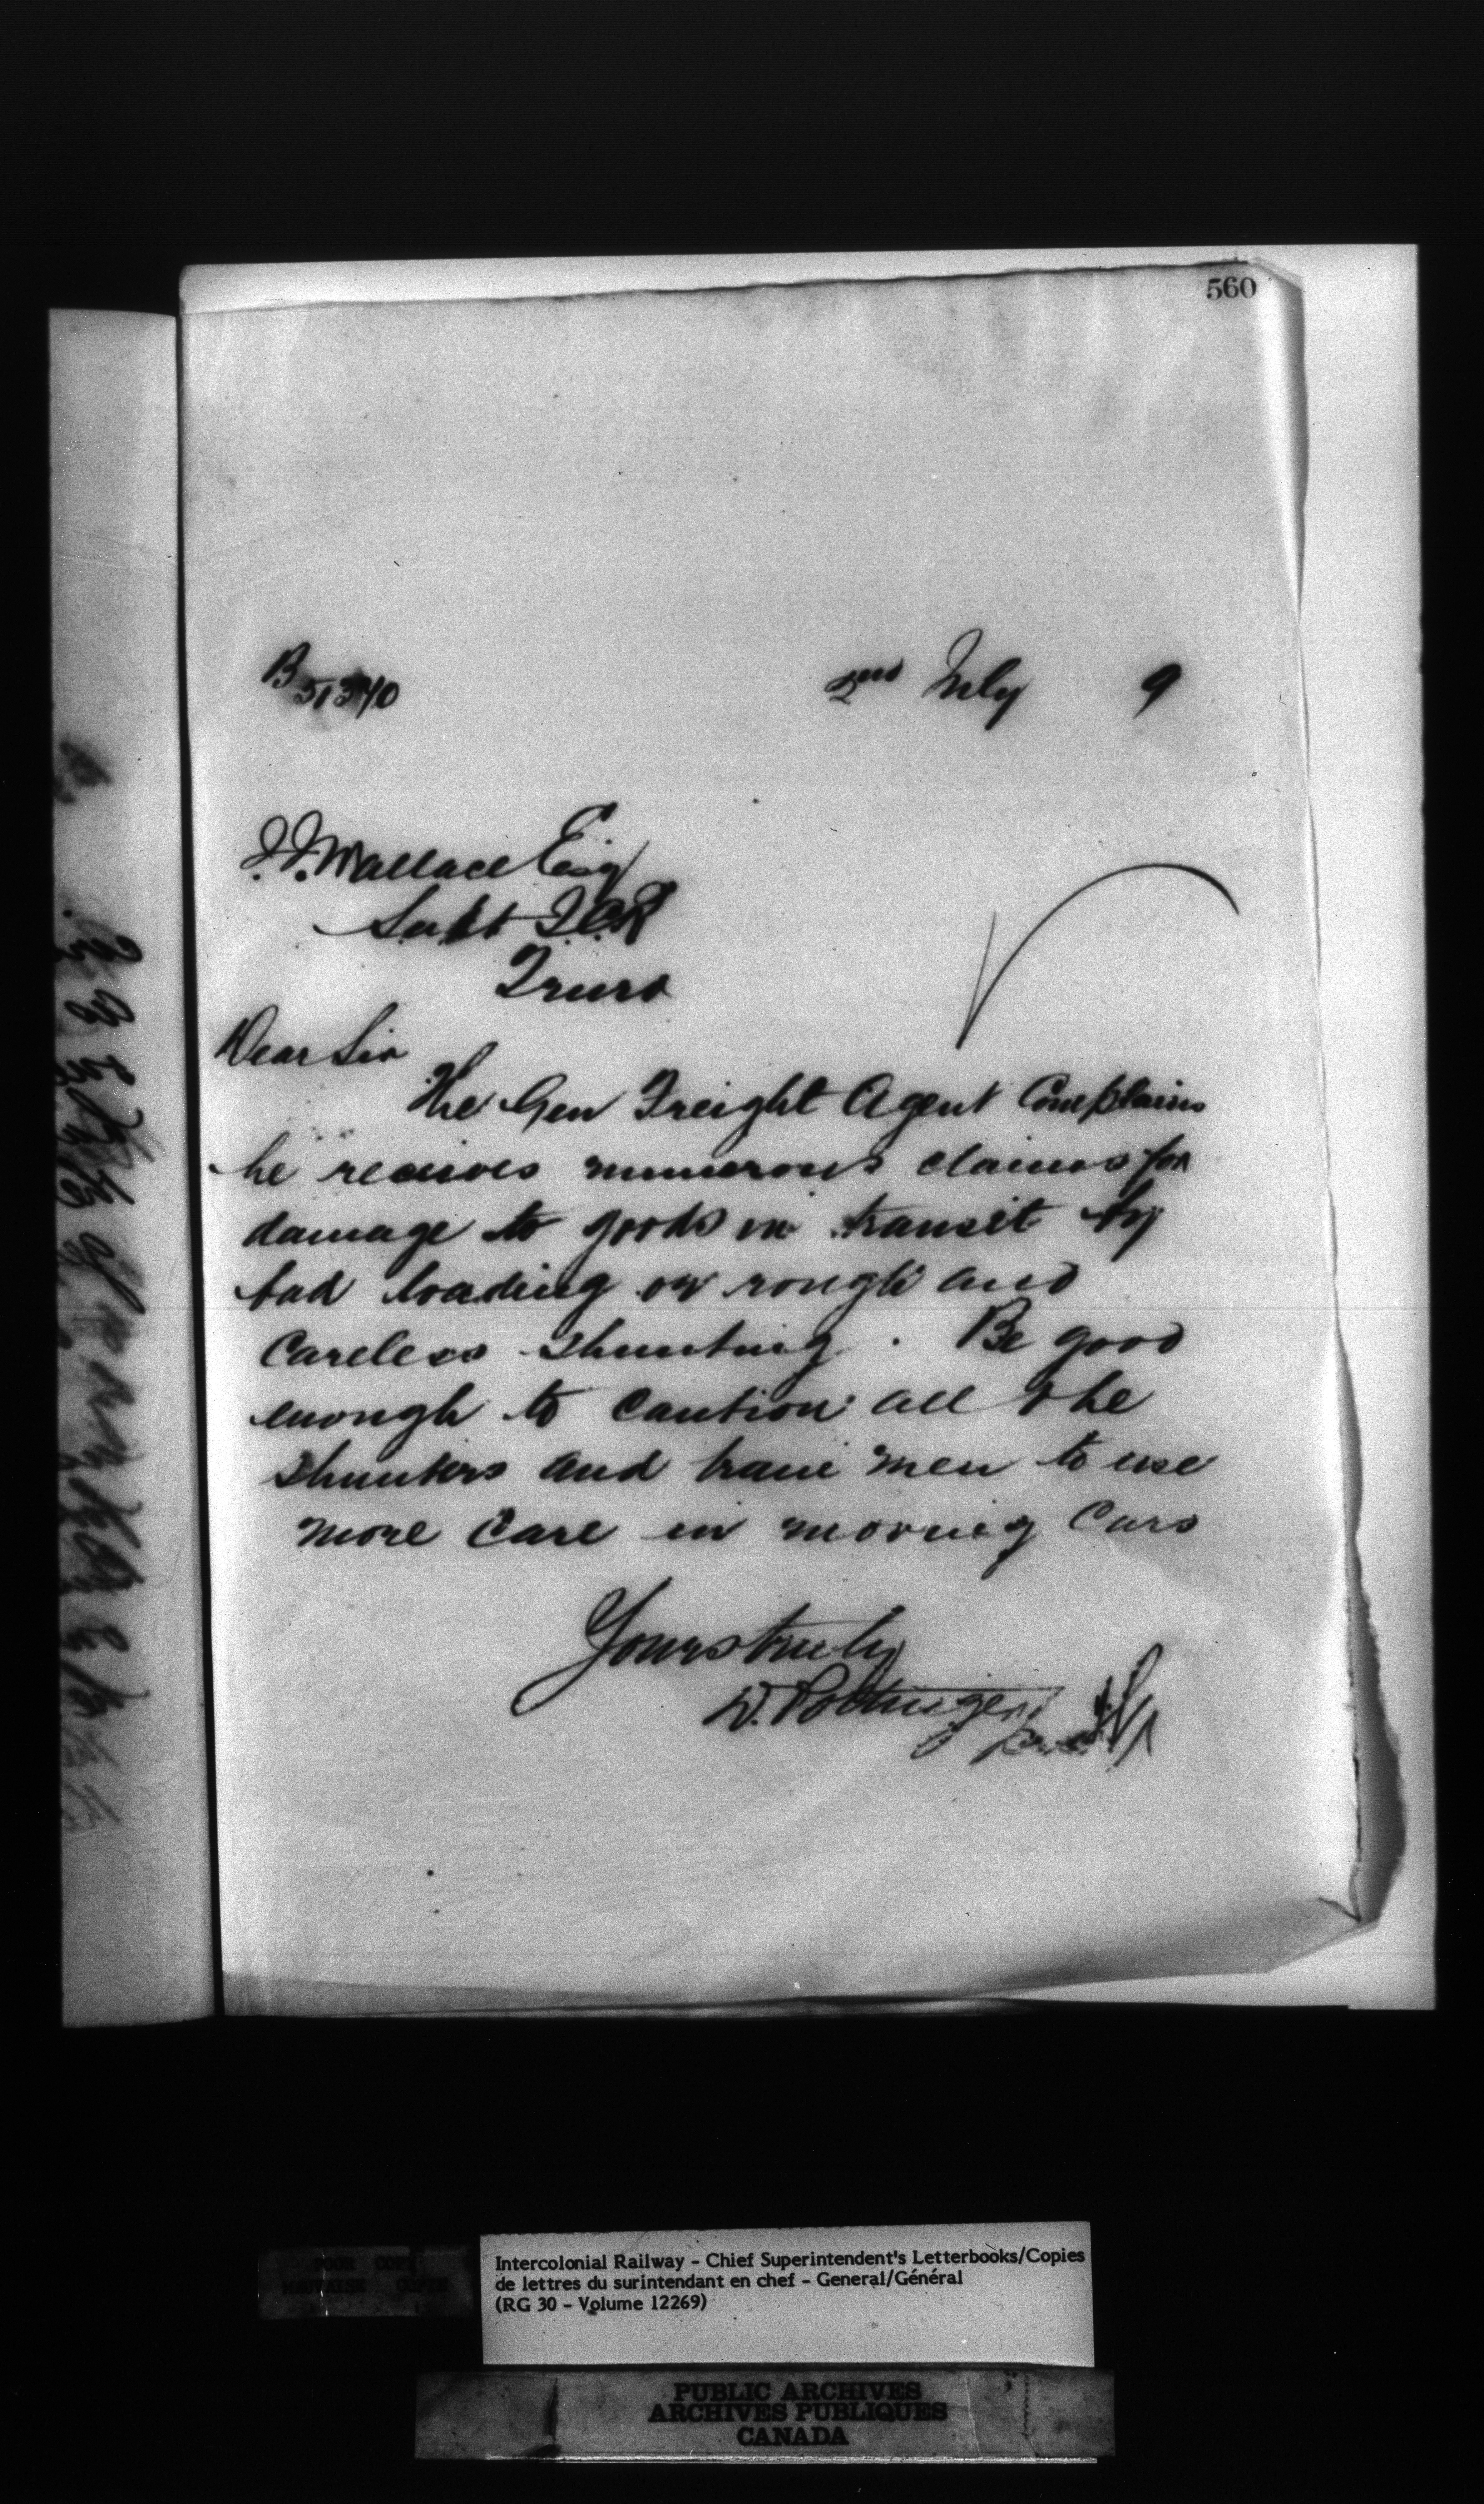 560
B 51340
2nd July 9
J.J. Wallace Esq
Supt I.C.R
Truro
Dear Sir
The Gen Freight Agent Complains
he receives numerous claims for
damage to goods in transit by
bad loading or rough and
careless shunting. Be good
enough to caution all the
shunters and train men to use
more care in moving Cars
Yours truly
D. Pottinger
POOR COPY
MAUVAISE COPIE
Intercolonial Railway - Chief Superintendent's Letterbooks/Copies
de lettres du surintendant en chef - General/Général
(RG 30 - Volume 12269)
PUBLIC ARCHIVES
ARCHIVES PUBLIQUES
CANADA